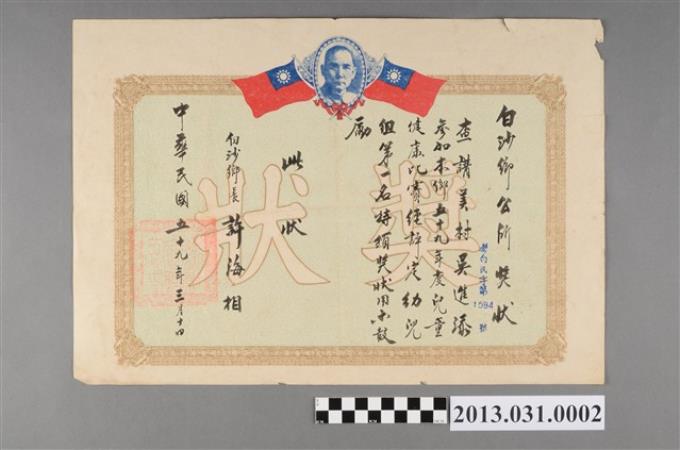 白沙鄉公所獎狀
澎白民字第1594號
查講美村吳進添
參加本鄉五十九年度兒童
健康比賽經評定幼兒
組第一名特頒獎狀用示鼓
勵
此狀
白沙鄉長許海相
中華民國五十九年三月十四
獎狀
2013.031.0002